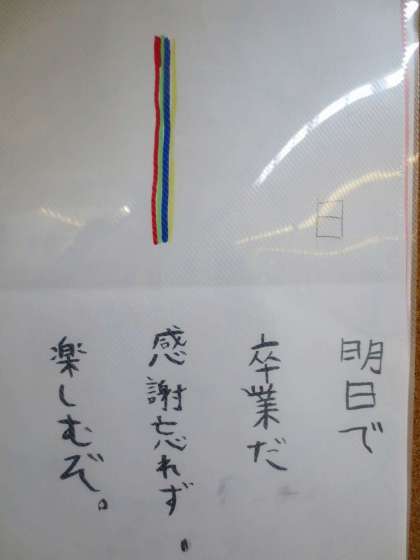 明日で
卒業だ
感謝忘れず
楽しむぞ。